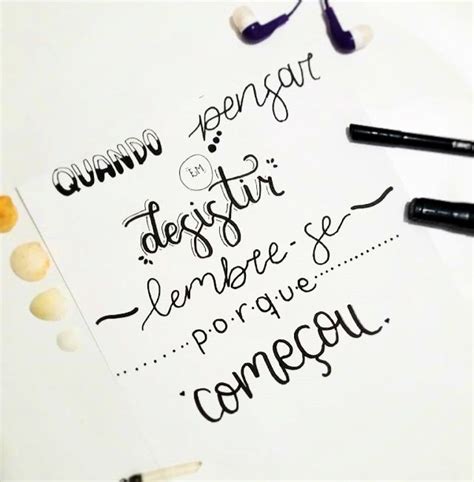 QUANDO pensar
EM
desistir
lembre-se
porque
começou.